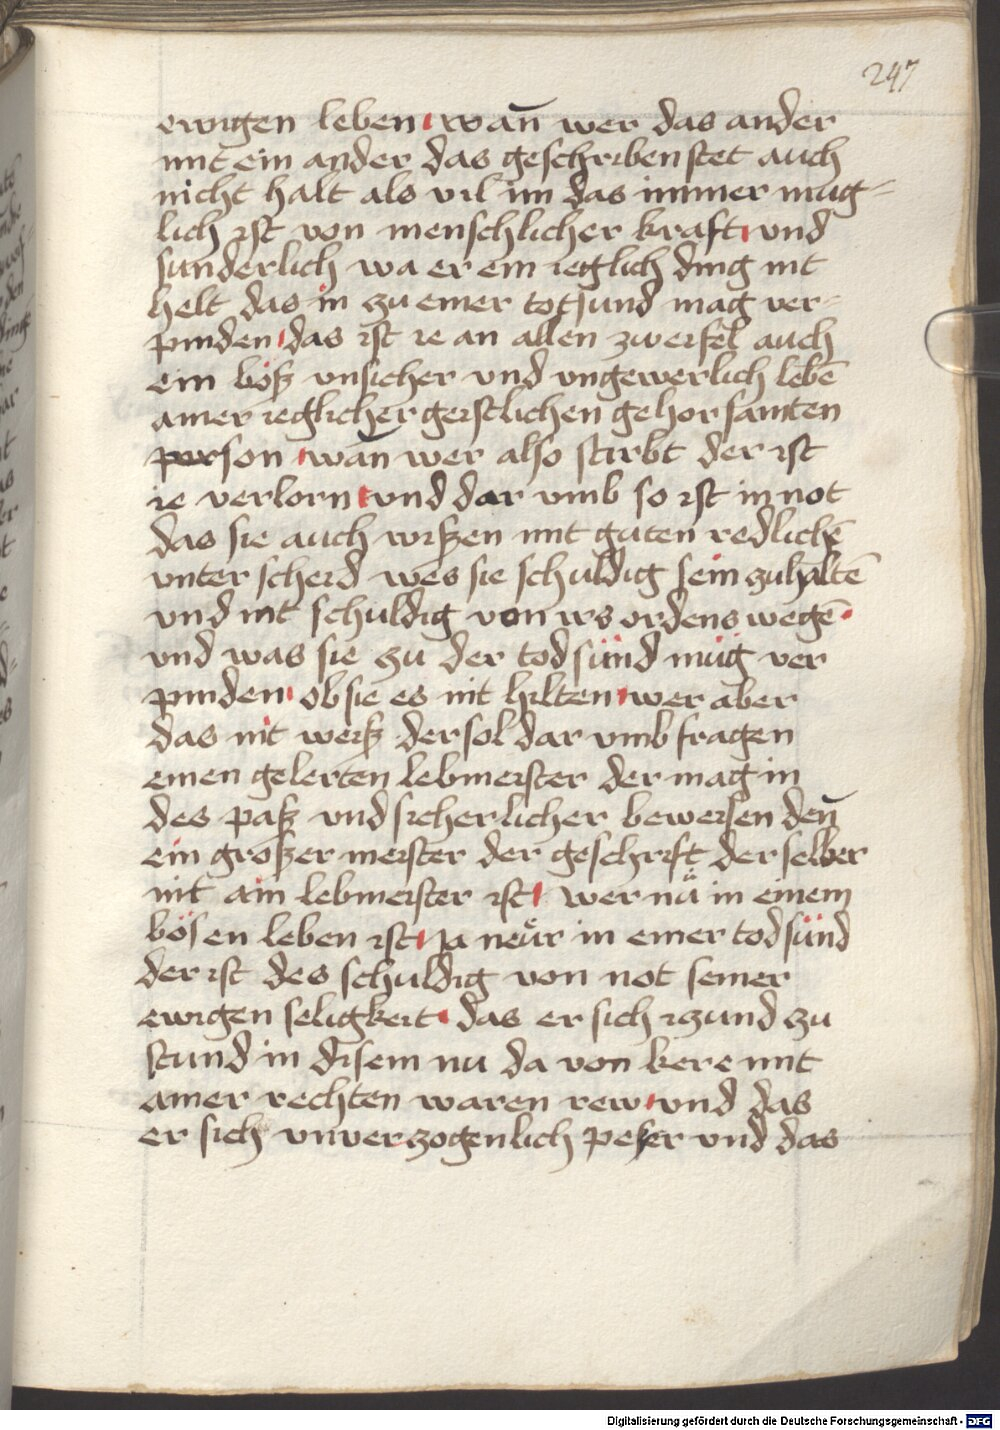 247
ewigen leben wan̄ wer das ander
mit ein ander das geschriben stet auch
nicht halt als vil im das immer mug-
lich ist von menschlicher kraft vnd
sunderlich wa er ein ieglich ding nit
helt das in zu einer totsund mag ver-
pinden das ist ie an allen zweifel auch
ein böß vnsicher vnd vngewerlich lebē
ainer ieglicher geistlichen gehorsamten
person wan̄ wer also stirbt der ist
ie verlorn vnd dar vmb so ist in not
das sie auch wißen mit guten redlichē
vnterscheid wes sie schuldig sein zuhaltē
vnd nit schuldig von irs ordens wegē
vnd was sie zu der todsünd müg ver
pinden ob sie es nit hilten wer aber
das nit weiß der sol dar vmb fragen
einen gelerten lebmeister der mag in
des paß vnd sicherlicher beweisen den̄
ein großer meister der geschrift der selber
nit ain lebmeister ist wer nů in einem
bösen leben ist Ja neůr in einer todsünd
der ist des schuldig von not seiner
ewigen seligkeit das er sich izund zu
stund in disem nu da von kere mit
ainer rechten waren rew vnd das
er sich vnverzogenlich peßer vnd das
Digitalisierung gefördert durch die Deutsche Forschungsgemeinschaft - DFG